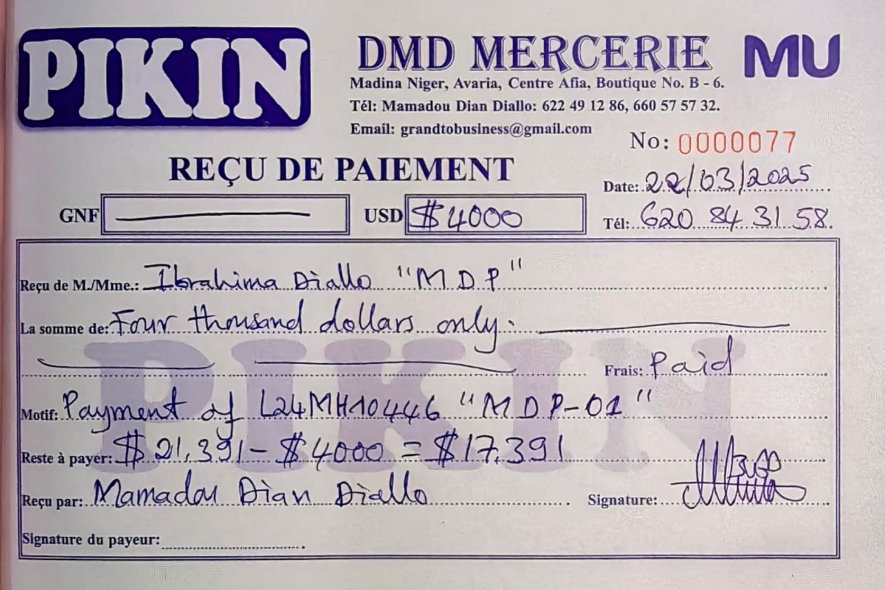 PIKIN
DMD MERCERIE MU
Madina Niger, Avaria, Centre Afia, Boutique No. B - 6.
Tél: Mamadou Dian Diallo: 622 49 12 86, 660 57 57 32.
Email: grandtobusiness@gmail.com
No: 0000077
REÇU DE PAIEMENT
Date: 22/03/2025
GNF USD $4000
Tél: 620 84 31 58.
Reçu de M./Mme.: Ibrahima Diallo "MDP"
La somme de: Four thousand dollars only.
Frais: Paid
Motif: Payment of L24MH10446 "MDP-01"
Reste à payer: $21,391 - $4000 = $17,391
Reçu par: Mamadou Dian Diallo
Signature:
Signature du payeur:
PIKIN